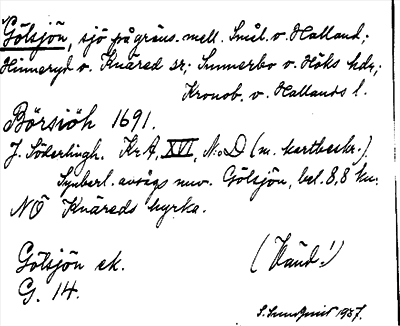 Gölsjön, sjö på gräns. mell. Smål. o. Halland;
Hinneryd o. Knäred sr; Sunnerbo o. Höks hdr;
Kronob. o. Hallands l.
Börsiöh 1691.
J. Söderlingh. KrA, XVI, N:o D (m. kartbeskr.)
Synberl. avsågs nuv. Gölsjön, bel. 8,8 km.
NÖ Knäreds kyrka.
Gölsjön ek. (Känd!)
G. 14.
S. Sundquist 1937.